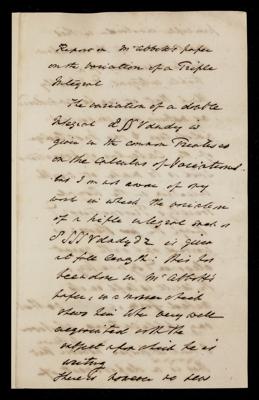 Report on Mr Abbott's paper
on the variation of a Triple
Integral
The variation of a double
Integral δ∫∫Vdxdy is
given in the common Treatises
on the Calculus of Variations
but I am not aware of any
work in which the variation
of a triple integral such as
δ∫∫∫Vdxdydz is given
at full length: this has
been done in Mr Abbott's
paper, in a manner which
shows him to be very well
acquainted with the
subject upon which he is
writing
There is however no